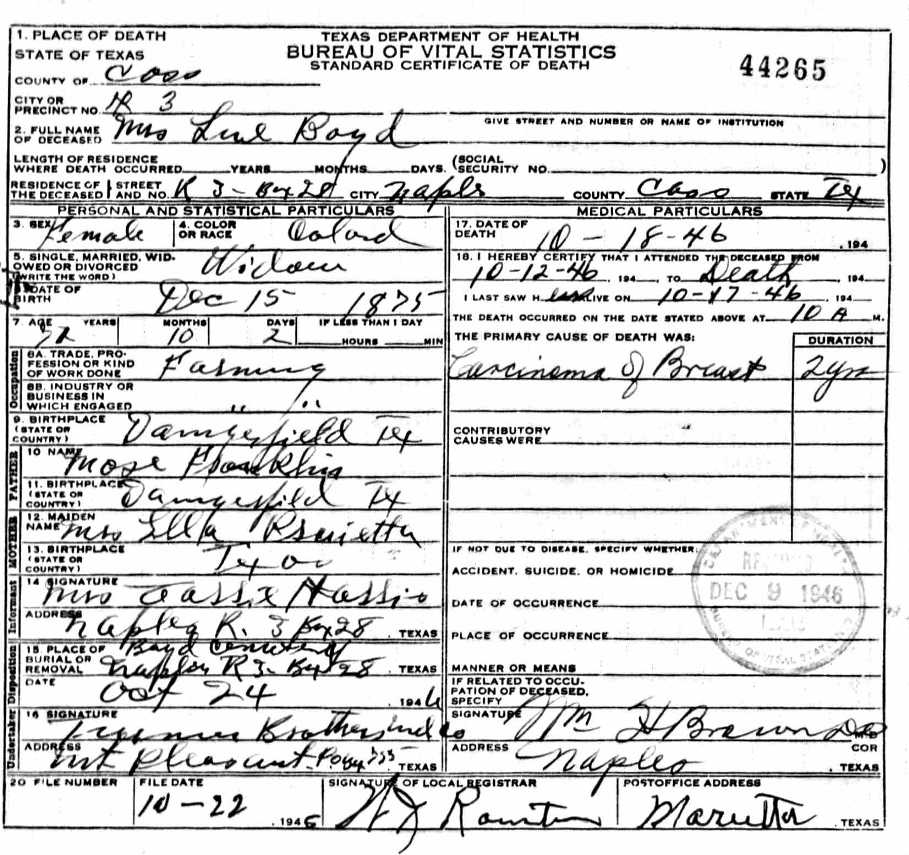 1. PLACE OF DEATH
STATE OF TEXAS
COUNTY OF Cass
TEXAS DEPARTMENT OF HEALTH
BUREAU OF VITAL STATISTICS
STANDARD CERTIFICATE OF DEATH
44265
CITY OR PRECINCT NO. R 3
GIVE STREET AND NUMBER OR NAME OF INSTITUTION
2. FULL NAME OF DECEASED Mrs Boyd
LENGTH OF RESIDENCE WHERE DEATH OCCURRED YEARS MONTHS DAYS. (SOCIAL SECURITY NO. )
RESIDENCE OF THE DECEASED STREET AND NO. R 3 - Box 28 CITY Naples COUNTY Cass STATE Tex
PERSONAL AND STATISTICAL PARTICULARS
3. SEX Female 4. COLOR OR RACE Colord
5. SINGLE, MARRIED, WIDOWED OR DIVORCED (WRITE THE WORD) Widow
DATE OF BIRTH Dec 15 1875
7. AGE YEARS MONTHS 10 DAYS 2 IF LESS THAN 1 DAY HOURS MIN
Occupation
8A. TRADE, PROFESSION OR KIND OF WORK DONE Farming
8B. INDUSTRY OR BUSINESS IN WHICH ENGAGED " "
9. BIRTHPLACE (STATE OR COUNTRY) Daingesfield Tex
FATHER
10 NAME Mose Franklin
11. BIRTHPLACE (STATE OR COUNTRY) Daingesfield Tex
MOTHER
12. MAIDEN NAME Mrs Ella
13. BIRTHPLACE (STATE OR COUNTRY)
Informant
14 SIGNATURE Mrs
ADDRESS Naples R. 3 Box 28 TEXAS
Undertaker Disposition
15 PLACE OF BURIAL OR REMOVAL Boyd Cemetery
Naples R 3 - Box 28 TEXAS
DATE Oct 24 1946
16 SIGNATURE Brothers
ADDRESS Mt Pleasant TEXAS
MEDICAL PARTICULARS
17. DATE OF DEATH 10-18-46 .194
18. I HEREBY CERTIFY THAT I ATTENDED THE DECEASED FROM
10-12-46 194 TO Death .194
I LAST SAW H ALIVE ON 10-17-46 194
THE DEATH OCCURRED ON THE DATE STATED ABOVE AT 10 A M.
THE PRIMARY CAUSE OF DEATH WAS: DURATION
Carcinoma of Breast 2 yrs
CONTRIBUTORY CAUSES WERE
IF NOT DUE TO DISEASE, SPECIFY WHETHER:
ACCIDENT, SUICIDE, OR HOMICIDE
DATE OF OCCURRENCE
PLACE OF OCCURRENCE
MANNER OR MEANS
DEC 9 1946
IF RELATED TO OCCUPATION OF DECEASED, SPECIFY
SIGNATURE Wm H Brown
ADDRESS Naples COR TEXAS
20 FILE NUMBER FILE DATE 10-22 .1946
SIGNATURE OF LOCAL REGISTRAR
POSTOFFICE ADDRESS Marietta TEXAS